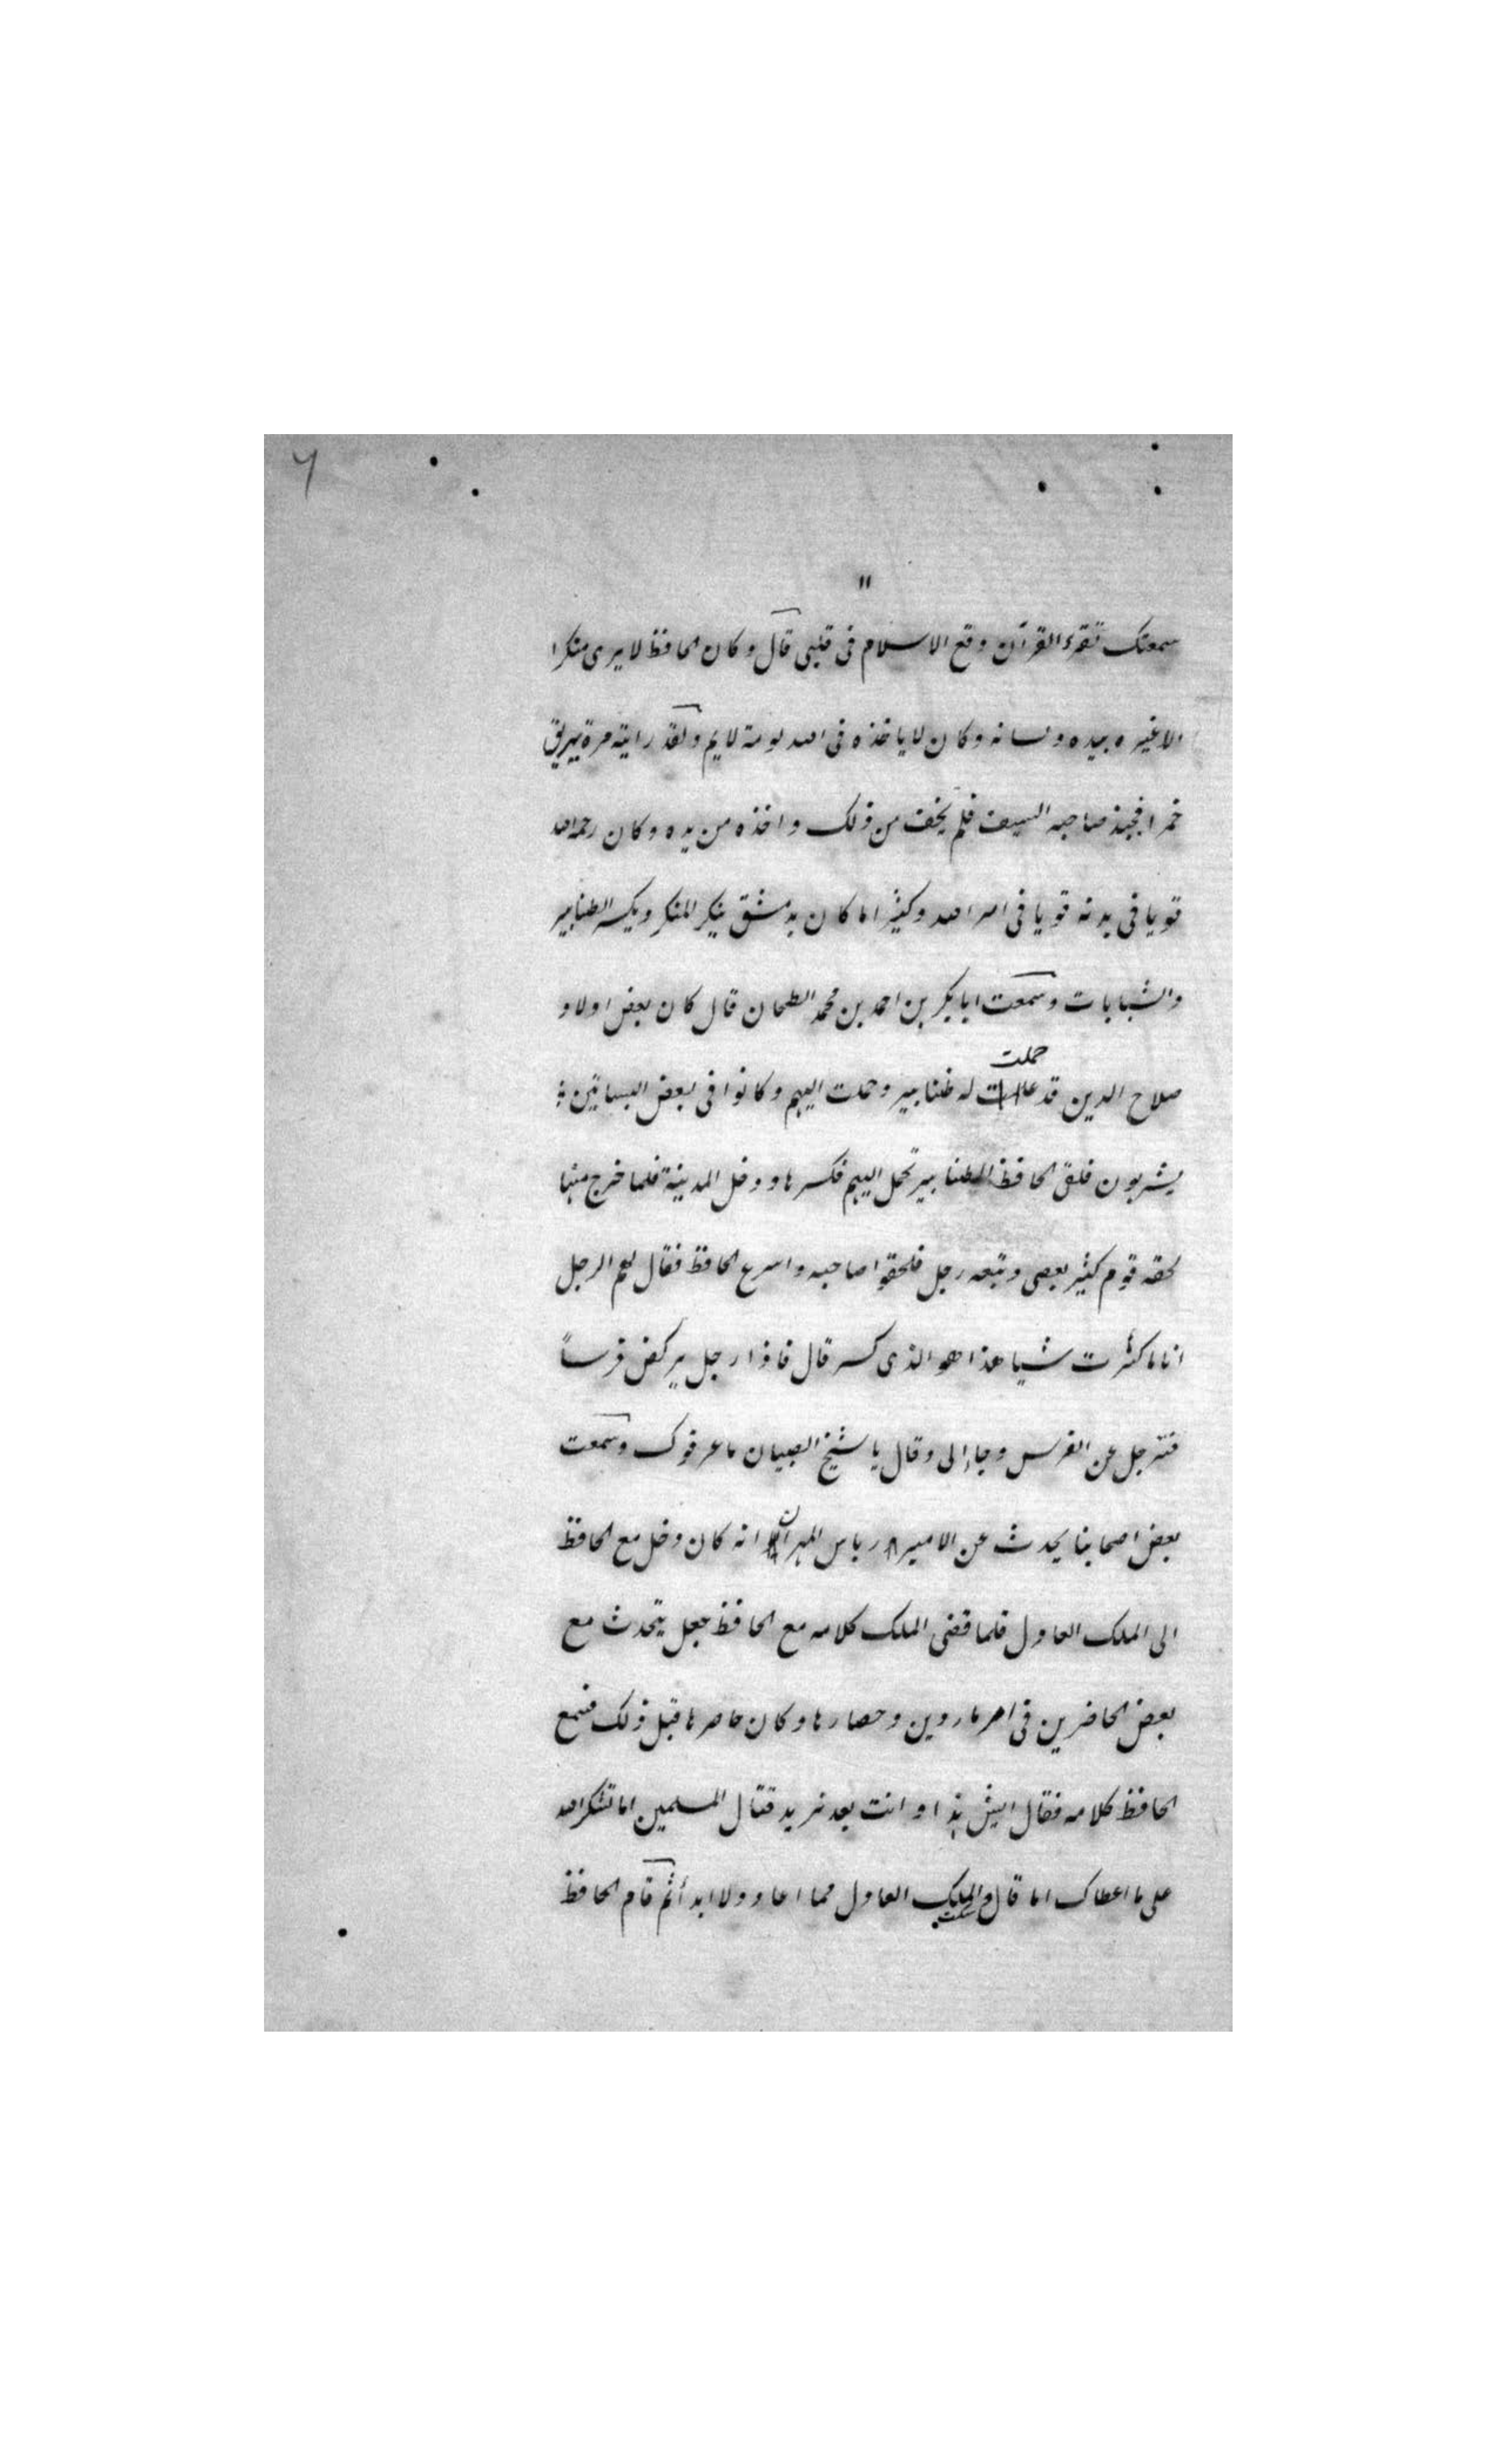 ٦
١١
سمعتك تقرء القرآن وقع الاسلام فى قلبى قال وكان الحافظ لا يرى منكرا
الا غيره بيده ولسانه وكان لا ياخذه فى الله لومة لايم ولقد رايته مرة يهريق
خمرا فجبذ صاحبه السيف فلم يخف من ذلك واخذه من يده وكان رحمه الله
قويا فى بدنه قويا فى امر الله وكثيرا ما كان بدمشق ينكر المنكر ويكسر الطنابير
والشبابات وسمعت ابا بكر بن احمد بن محمد الطحان قال كان بعض اولاد
صلاح الدين قد عملت له طنابير وحملت اليهم وكانوا فى بعض البساتين
حملت
يشربون فلقى الحافظ الطنابير تحمل اليهم فكسرها ودخل المدينة فلما خرج منها
لحقه قوم كثير بعصى وتبعه رجل فلحقوا صاحبه واسرع الحافظ فقال لهم الرجل
انا ما كسرت شيا هذا هو الذى كسر قال فاذا رجل يركض فرساً
فترجل عن الفرس وجاء إلى وقال يا شيخ الصبيان ما عرفوك وسمعت
بعض اصحابنا يحدث عن الامير درباس المهرانى انه كان دخل مع الحافظ
الى الملك العادل فلما قضى الملك كلامه مع الحافظ جعل يتحدث مع
بعض الحاضرين فى امر ماردين وحصارها وكان حاصرها قبل ذلك فسمع
الحافظ كلامه فقال ايش هذا وانت بعد تريد قتال المسلمين اما تشكر الله
على ما اعطاك اما قال وسكت الملك العادل فما اعاد ولا ابدأ ثم قام الحافظ